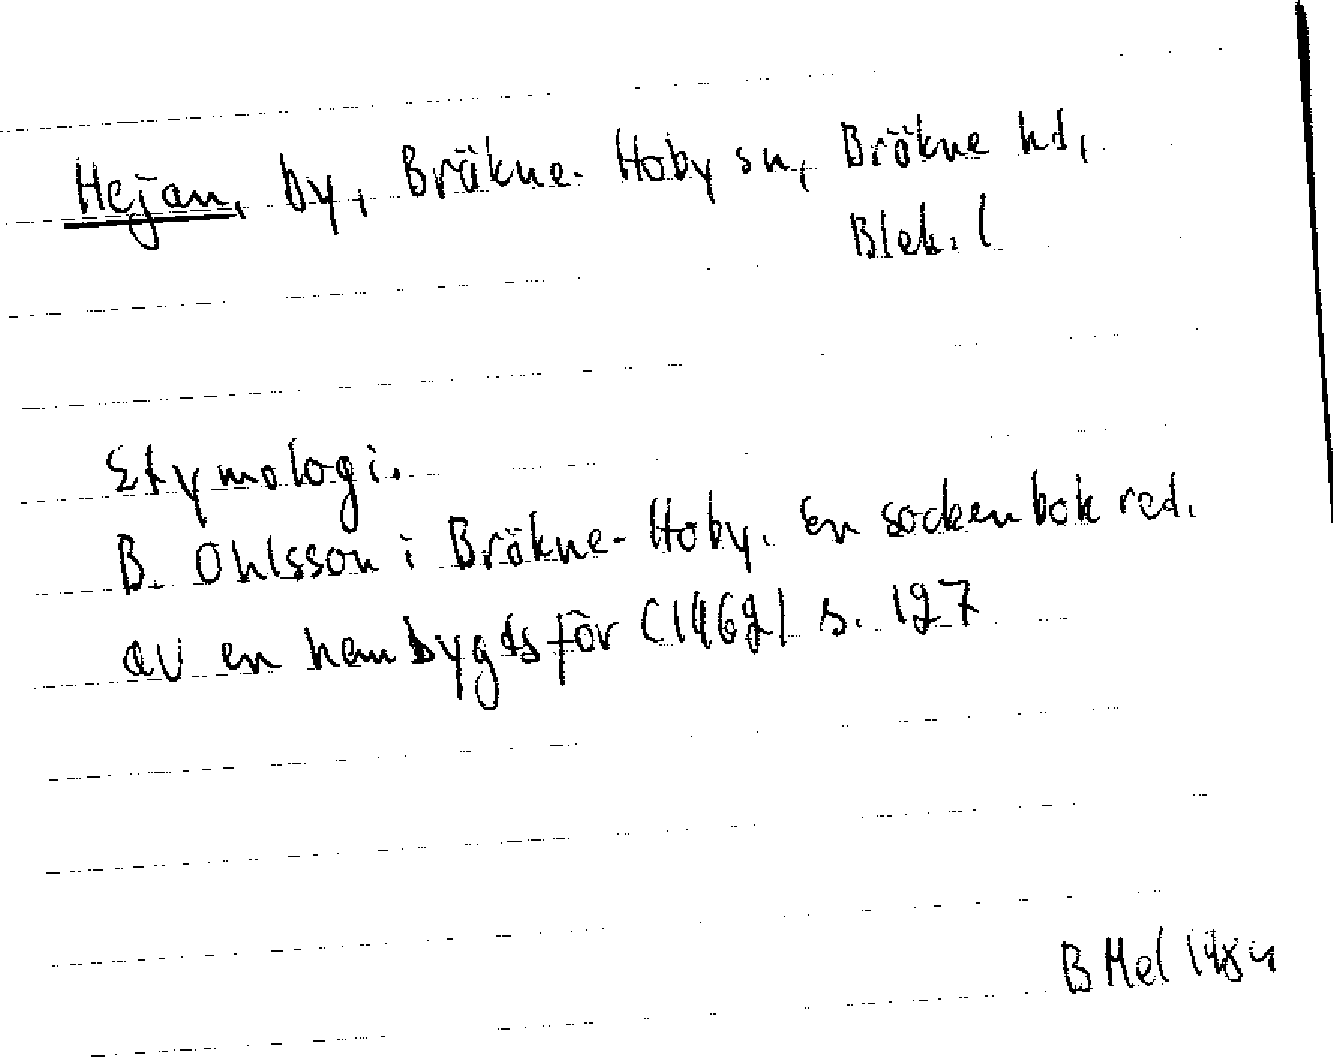 Hejan, by, Bräkne-Hoby sn, Bräkne hd,
Blek. l
Etymologi.
B. Ohlsson i Bräkne-Hoby. En sockenbok red.
av en hembygdsför (1962) s. 127
B Mel 1984